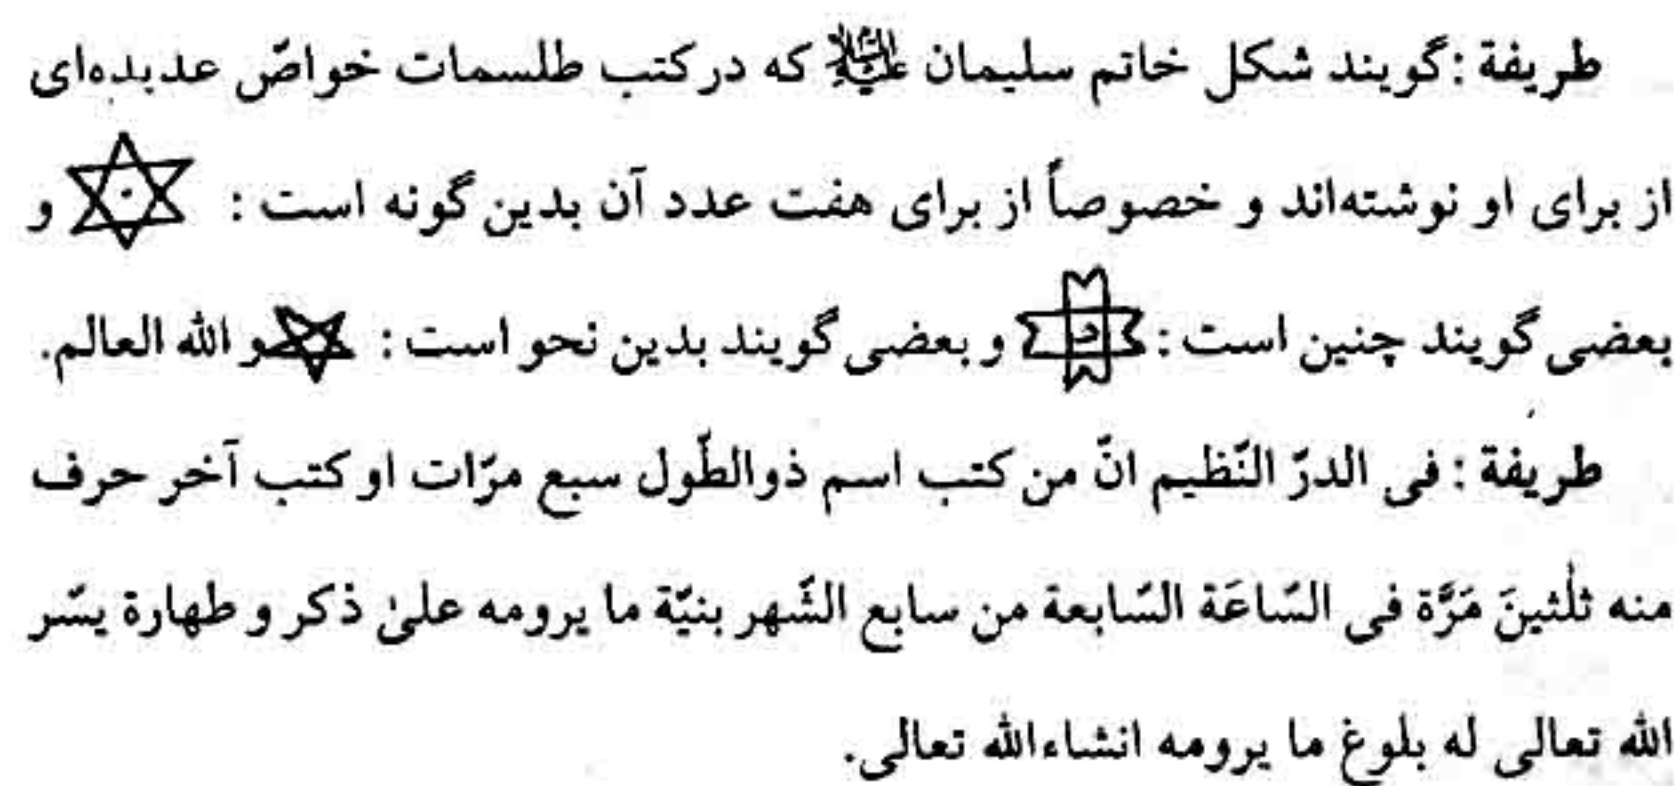 طریفة : گویند شکل خاتم سلیمان علیه‌السلام که در کتب طلسمات خواصّ عدیده‌ای
از برای او نوشته‌اند و خصوصاً از برای هفت عدد آن بدین گونه است : و
بعضی گویند چنین است : د و بعضی گویند بدین نحو است : و الله العالم.
طریفة : فی الدرّ النّظیم انّ من کتب اسم ذوالطّول سبع مرّات او کتب آخر حرف
منه ثلٰثینَ مَرَّة فی السّاعَة السّابعة من سابع الشّهر بنیّة ما یرومه علیٰ ذکر و طهارة یسّر
الله تعالی له بلوغ ما یرومه انشاءالله تعالی.